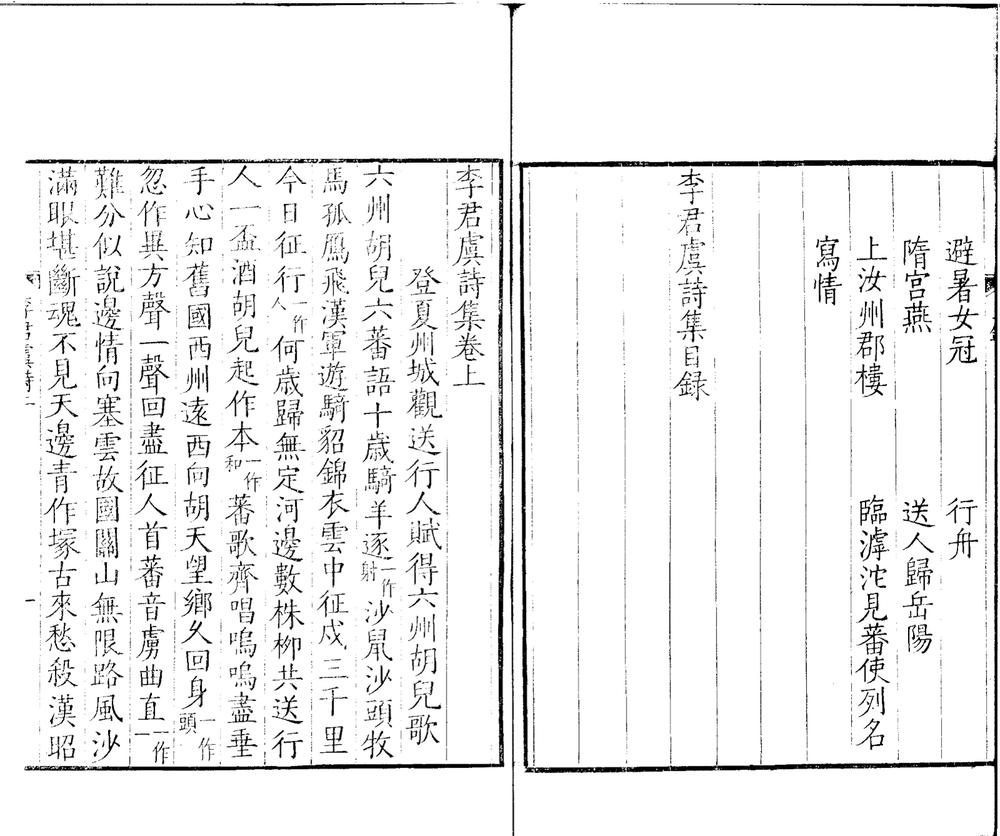 避暑女冠 行舟
隋宮燕 送人歸岳陽
上汝州郡樓 臨滹沱見蕃使列名
寫情
李君虞詩集目録
李君虞詩集卷上
登夏州城觀送行人賦得六州胡兒歌
六州胡兒六蕃語十歲騎羊逐一作射沙鼠沙頭牧
馬孤鴈飛漢軍遊騎貂錦衣雲中征戍三千里
今日征行一作人何歲歸無定河邊數株柳共送行
人一盃酒胡兒起作本一作和蕃歌齊唱嗚嗚盡垂
手心知舊國西州遠西向胡天望鄉久回身一作頭
忽作異方聲一聲回盡征人首蕃音虜曲直一作一
難分似說邊情向塞雲故國關山無限路風沙
滿眼堪斷魂不見天邊青作塚古來愁殺漢昭